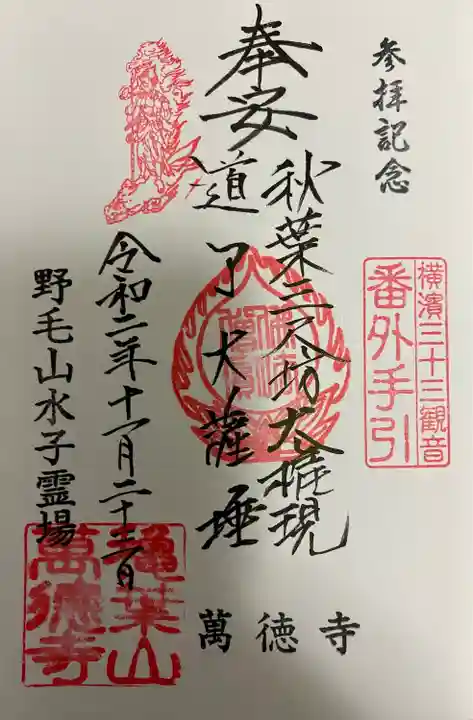 参拝記念
横濱三十三観音
番外手引
奉安
秋葉三尺坊大権現
道了大薩埵
令和二年十一月二十三日
野毛山水子霊場
亀葉山
萬徳寺
萬徳寺